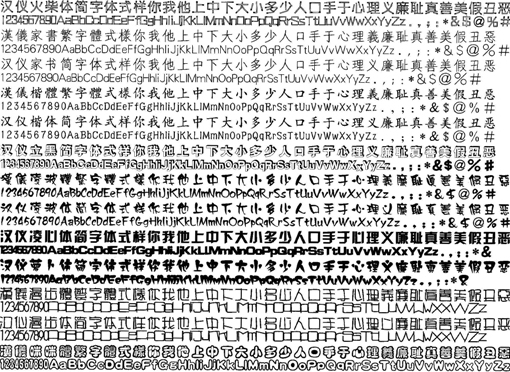 汉仪火柴体简字体式样你我他上中下大小多少人口手于心理义廉耻真善美假丑恶
1234567890AaBbCcDdEeFfGgHhIiJjKkLlMmNnOoPpQqRrSsTtUuVvWwXxYyZz.,:;*&$@%#
漢儀家書繁字體式樣你我他上中下大小多少人口手于心理義廉耻真善美假丑惡
1234567890AaBbCcDdEeFfGgHhIiJjKkLlMmNnOoPpQqRrSsTtUuVvWwXxYyZz.,:;*&$@%#
汉仪家书简字体式样你我他上中下大小多少人口手于心理义廉耻真善美假丑恶
1234567890AaBbCcDdEeFfGgHhIiJjKkLlMmNnOoPpQqRrSsTtUuVvWwXxYyZz.,:;*&$@%#
漢儀楷體繁字體式樣你我他上中下大小多少人口手于心理義廉耻真善美假丑惡
1234567890AaBbCcDdEeFfGgHhIiJjKkLlMmNnOoPpQqRrSsTtUuVvWwXxYyZz.,:;*&$@%#
汉仪楷体简字體式样你我他上中下大小多少人口手于心理义廉耻真善美假丑恶
1234567890AaBbCcDdEeFfGgHhIiJjKkLlMmNnOoPpQqRrSsTtUuVvWwXxYyZz.,:;*&$@%#
汉仪立黑简字体式样你我他上中下大小多少人口手于心理义廉耻真善美假丑恶
1234567890AaBbCcDdEeFfGgHhIiJjKkLlMmNnOoPpQqRrSsTtUuVvWwXxYyZz.,:;*&$@%#
漢儀凌波體繁字體式樣你我他上中下大小多少人口手于心理義廉耻真善美假丑惡
1234567890AaBbCcDdEeFfGgHhIiJjKkLlMmNnOoPpQqRrSsTtUuVvWwXxYyZz.,:;*&$@%#
汉仪凌波体简字体式样你我他上中下大小多少人口手于心理义廉耻真善美假丑恶
1234567890AaBbCcDdEeFfGgHhIiJjKkLlMmNnOoPpQqRrSsTtUuVvWwXxYyZz.,:;*&$@%#
汉仪凌心体简字体式样你我他上中下大小多少人口手于心理义廉耻真善美假丑恶
1234567890AaBbCcDdEeFfGgHhIiJjKkLlMmNnOoPpQqRrSsTtUuVvWwXxYyZz.,:;*&$@%#
汉仪萝卜体简字体式样你我他上中下大小多少人口手于心理义廉耻真善美假丑恶
1234567890AaBbCcDdEeFfGgHhIiJjKkLlMmNnOoPpQqRrSsTtUuVvWwXxYyZz.,:;*&
漢儀體繁字體式樣你我他上中下大小多少人口手于心理義廉耻真善美假丑惡
1234567890
汉仪体简字体式样你我他上中下大小多少人口手于心理义廉耻真善美假丑恶
1234567890
漢儀體繁字體式樣你我他上中下大小多少人口手于心理義廉耻真善美假丑惡
1234567890AaBbCcDdEeFfGgHhIiJjKkLlMmNnOoPpQqRrSsTtUuVvWwXxYyZz.,:;*&$@%#